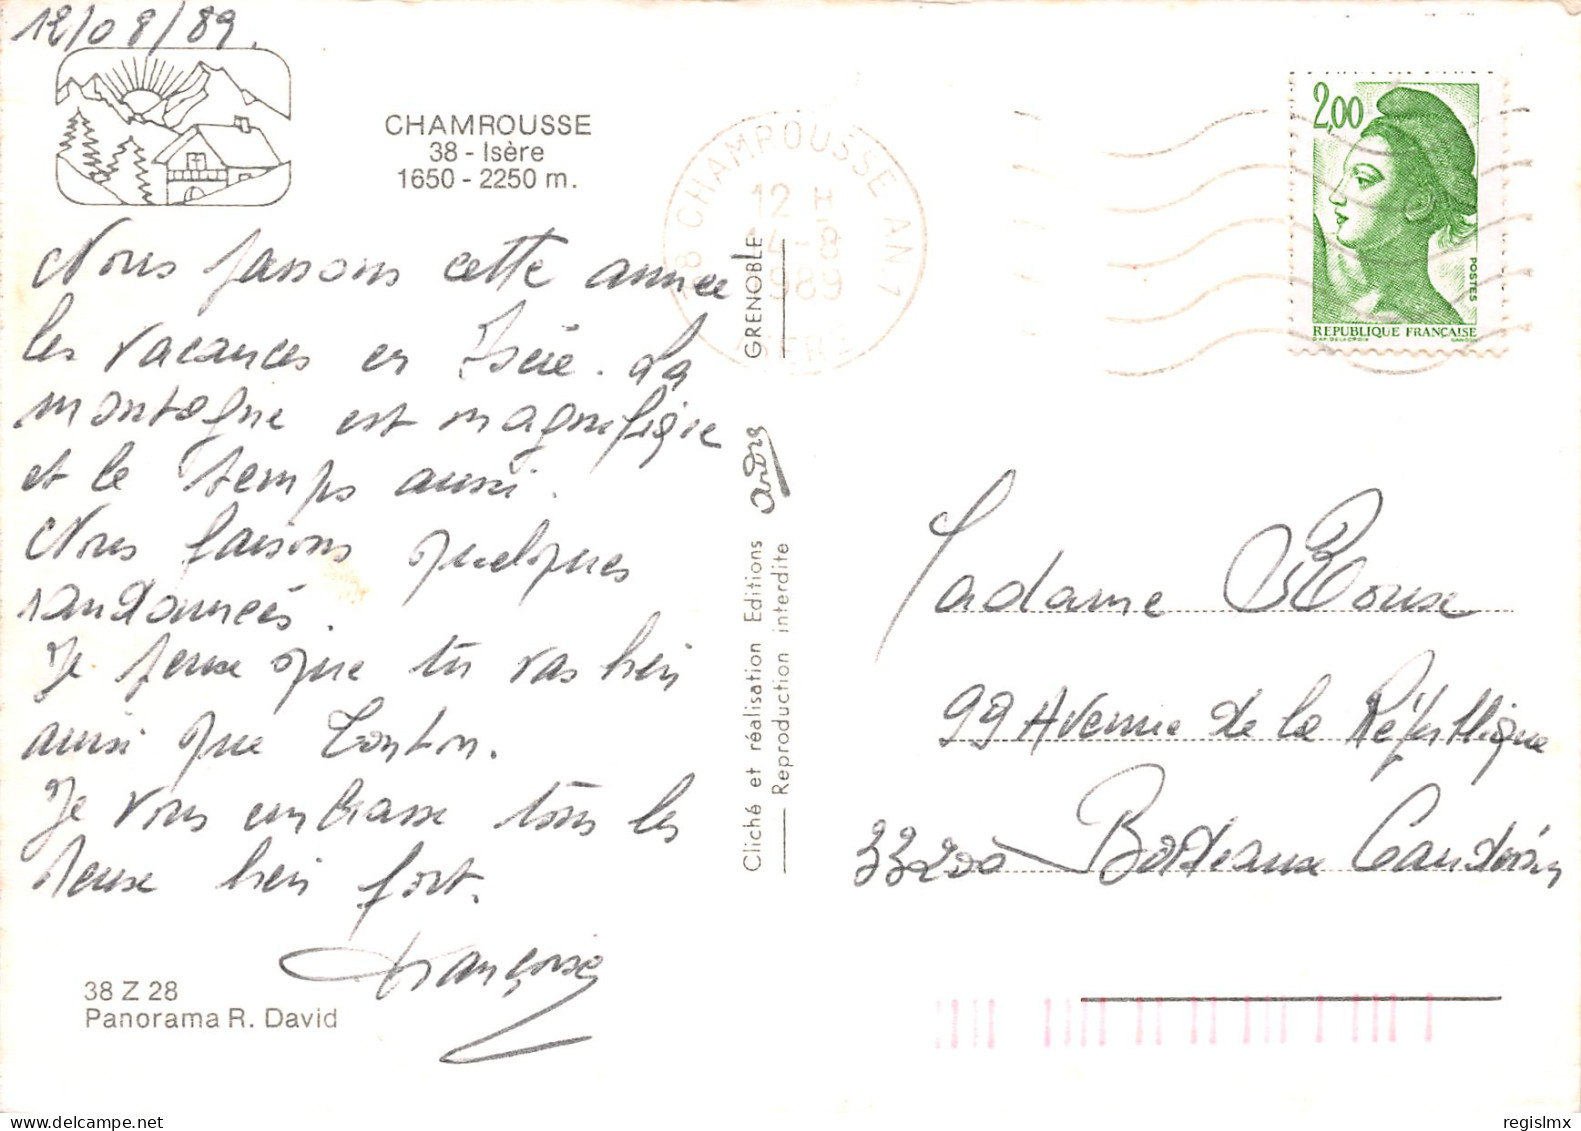 12/08/89.
CHAMROUSSE
38 - Isère
1650 - 2250 m.
Nous passons cette année
les vacances en Isère. La
montagne est magnifique
et le temps aussi.
Nous faisons quelques
randonnées.
Je pense que tu vas bien
aussi que Tonton.
Je vous embrasse tous les
deux bien fort.
Françoise
38 Z 28
Panorama R. David
GRENOBLE
andre
Cliché et réalisation Editions
Reproduction interdite
38 CHAMROUSSE AN 1
12 H
14-8
1989
ISERE
2,00
POSTES
REPUBLIQUE FRANÇAISE
D'AP. DELACROIX GANDON
Madame Roux
99 Avenue de la République
33200 Bordeaux Caudéran
regislmx